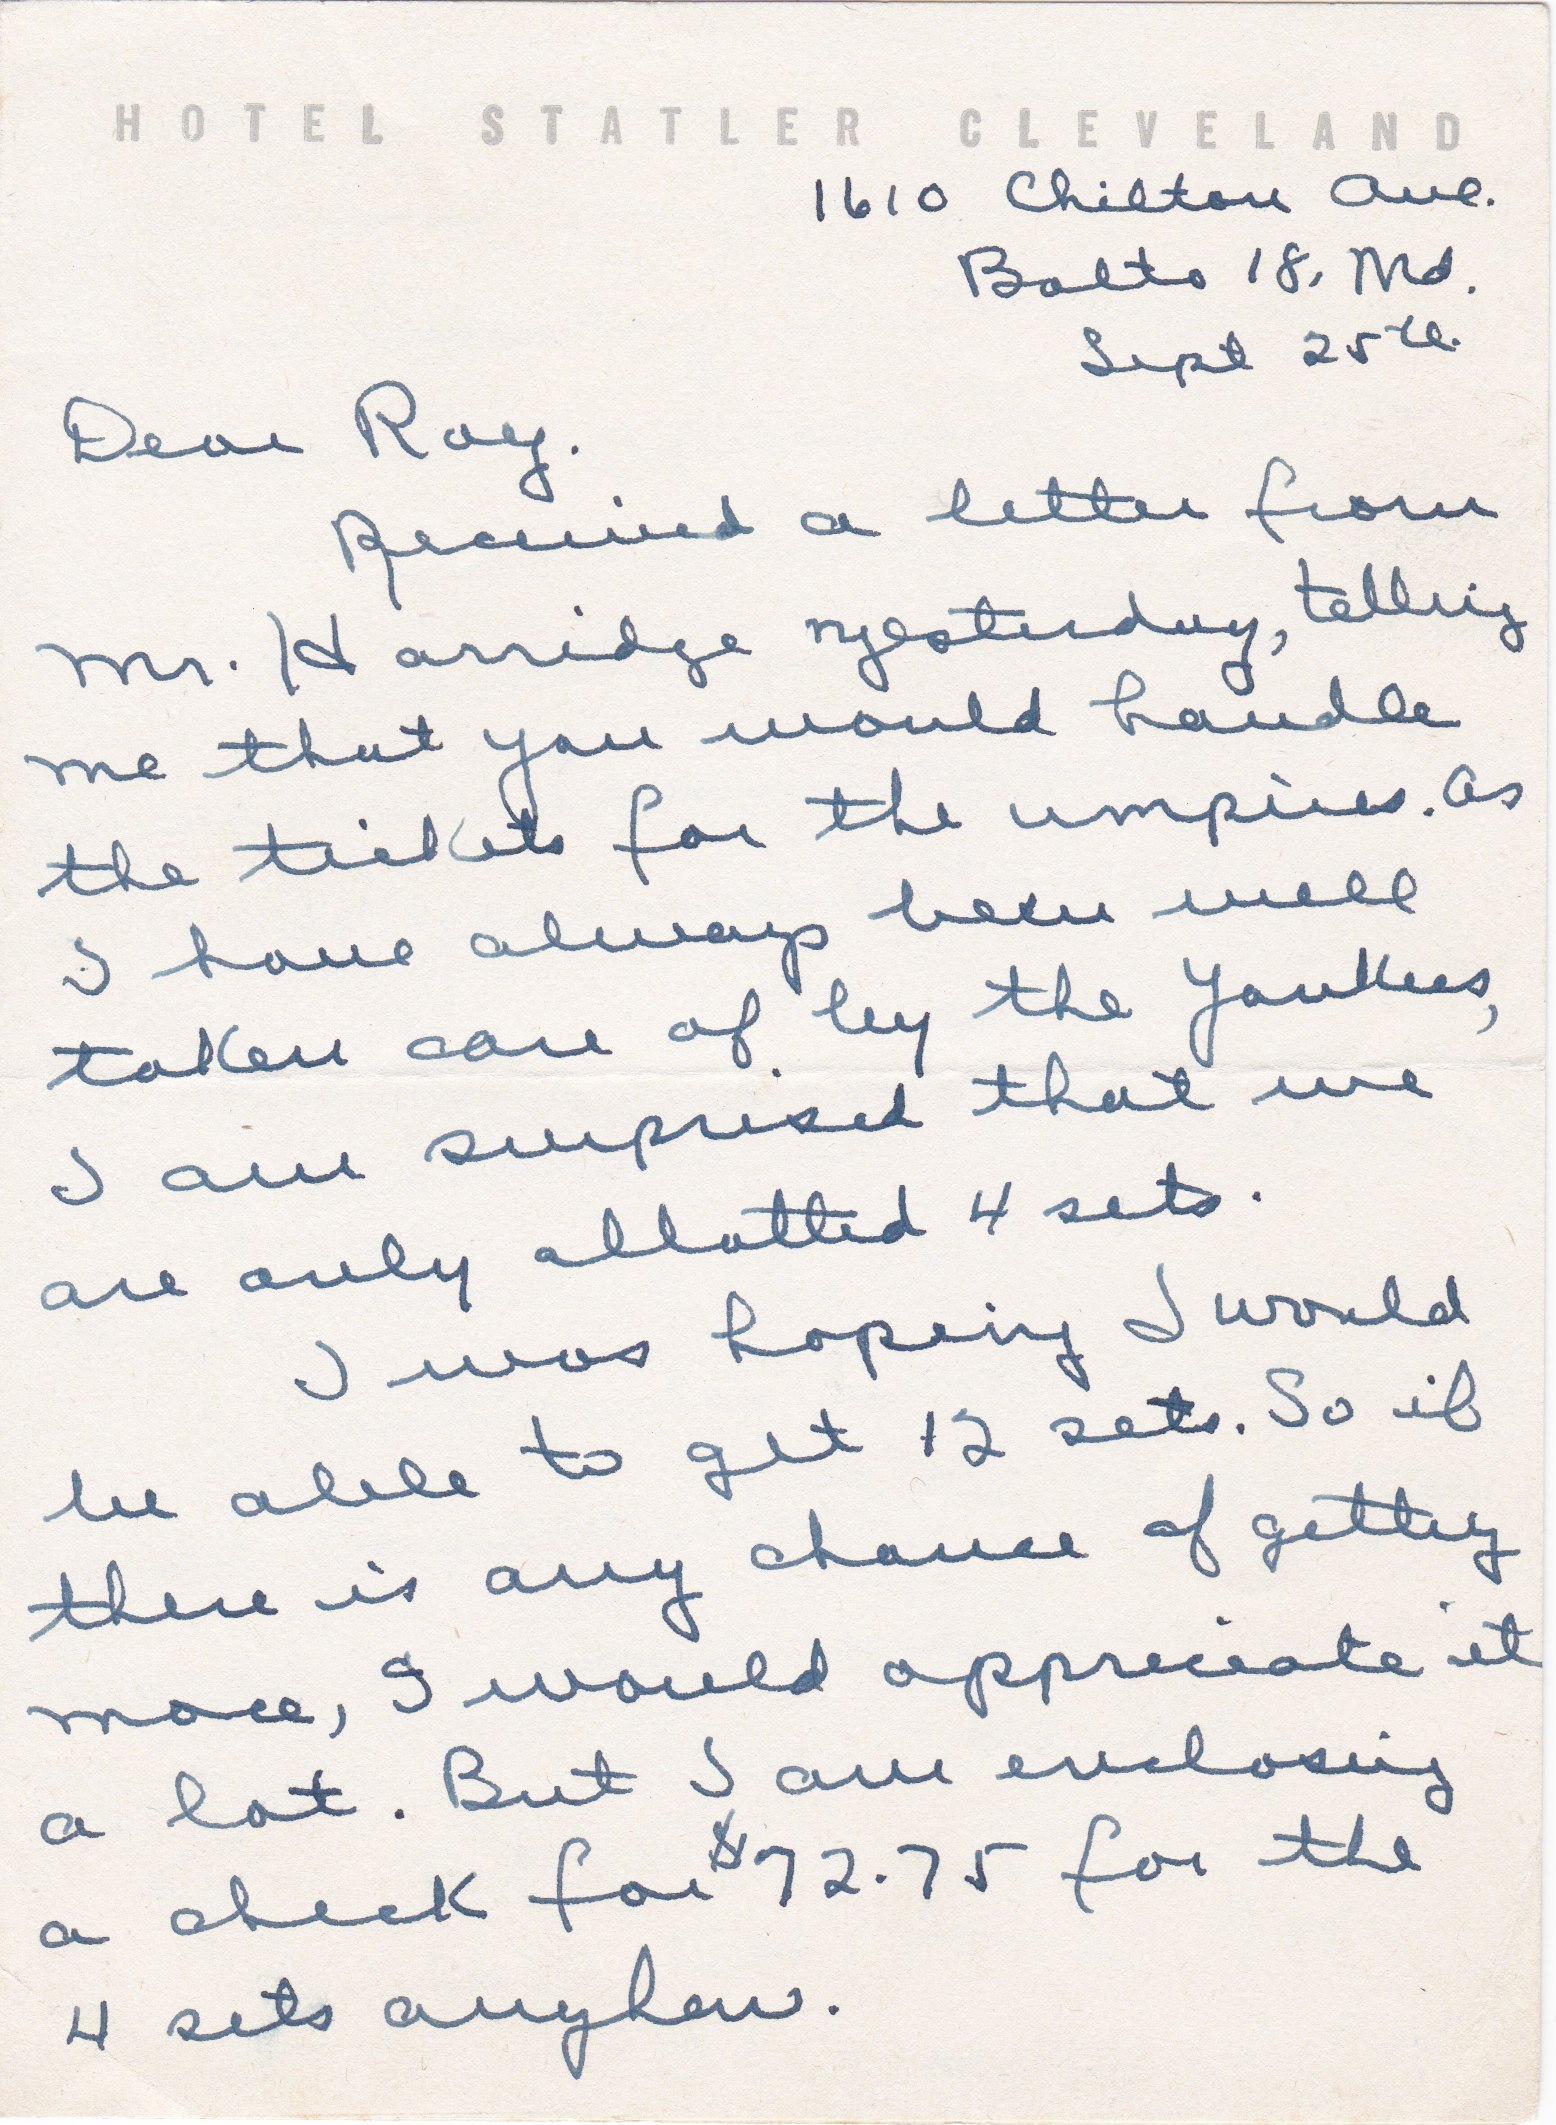 HOTEL STATLER CLEVELAND
1610 Chilton Ave.
Balto 18, Md.
Sept 25th.
Dear Ray.
Received a letter from
Mr. Harridge yesterday, telling
me that you would handle
the tickets for the umpires. As
I have always been well
taken care of by the Yankees,
I am surprised that we
are only allotted 4 sets.
I was hoping I would
be able to get 12 sets. So if
there is any chance of getting
more, I would appreciate it
a lot. But I am enclosing
a check for $72.75 for the
4 sets anyhow.